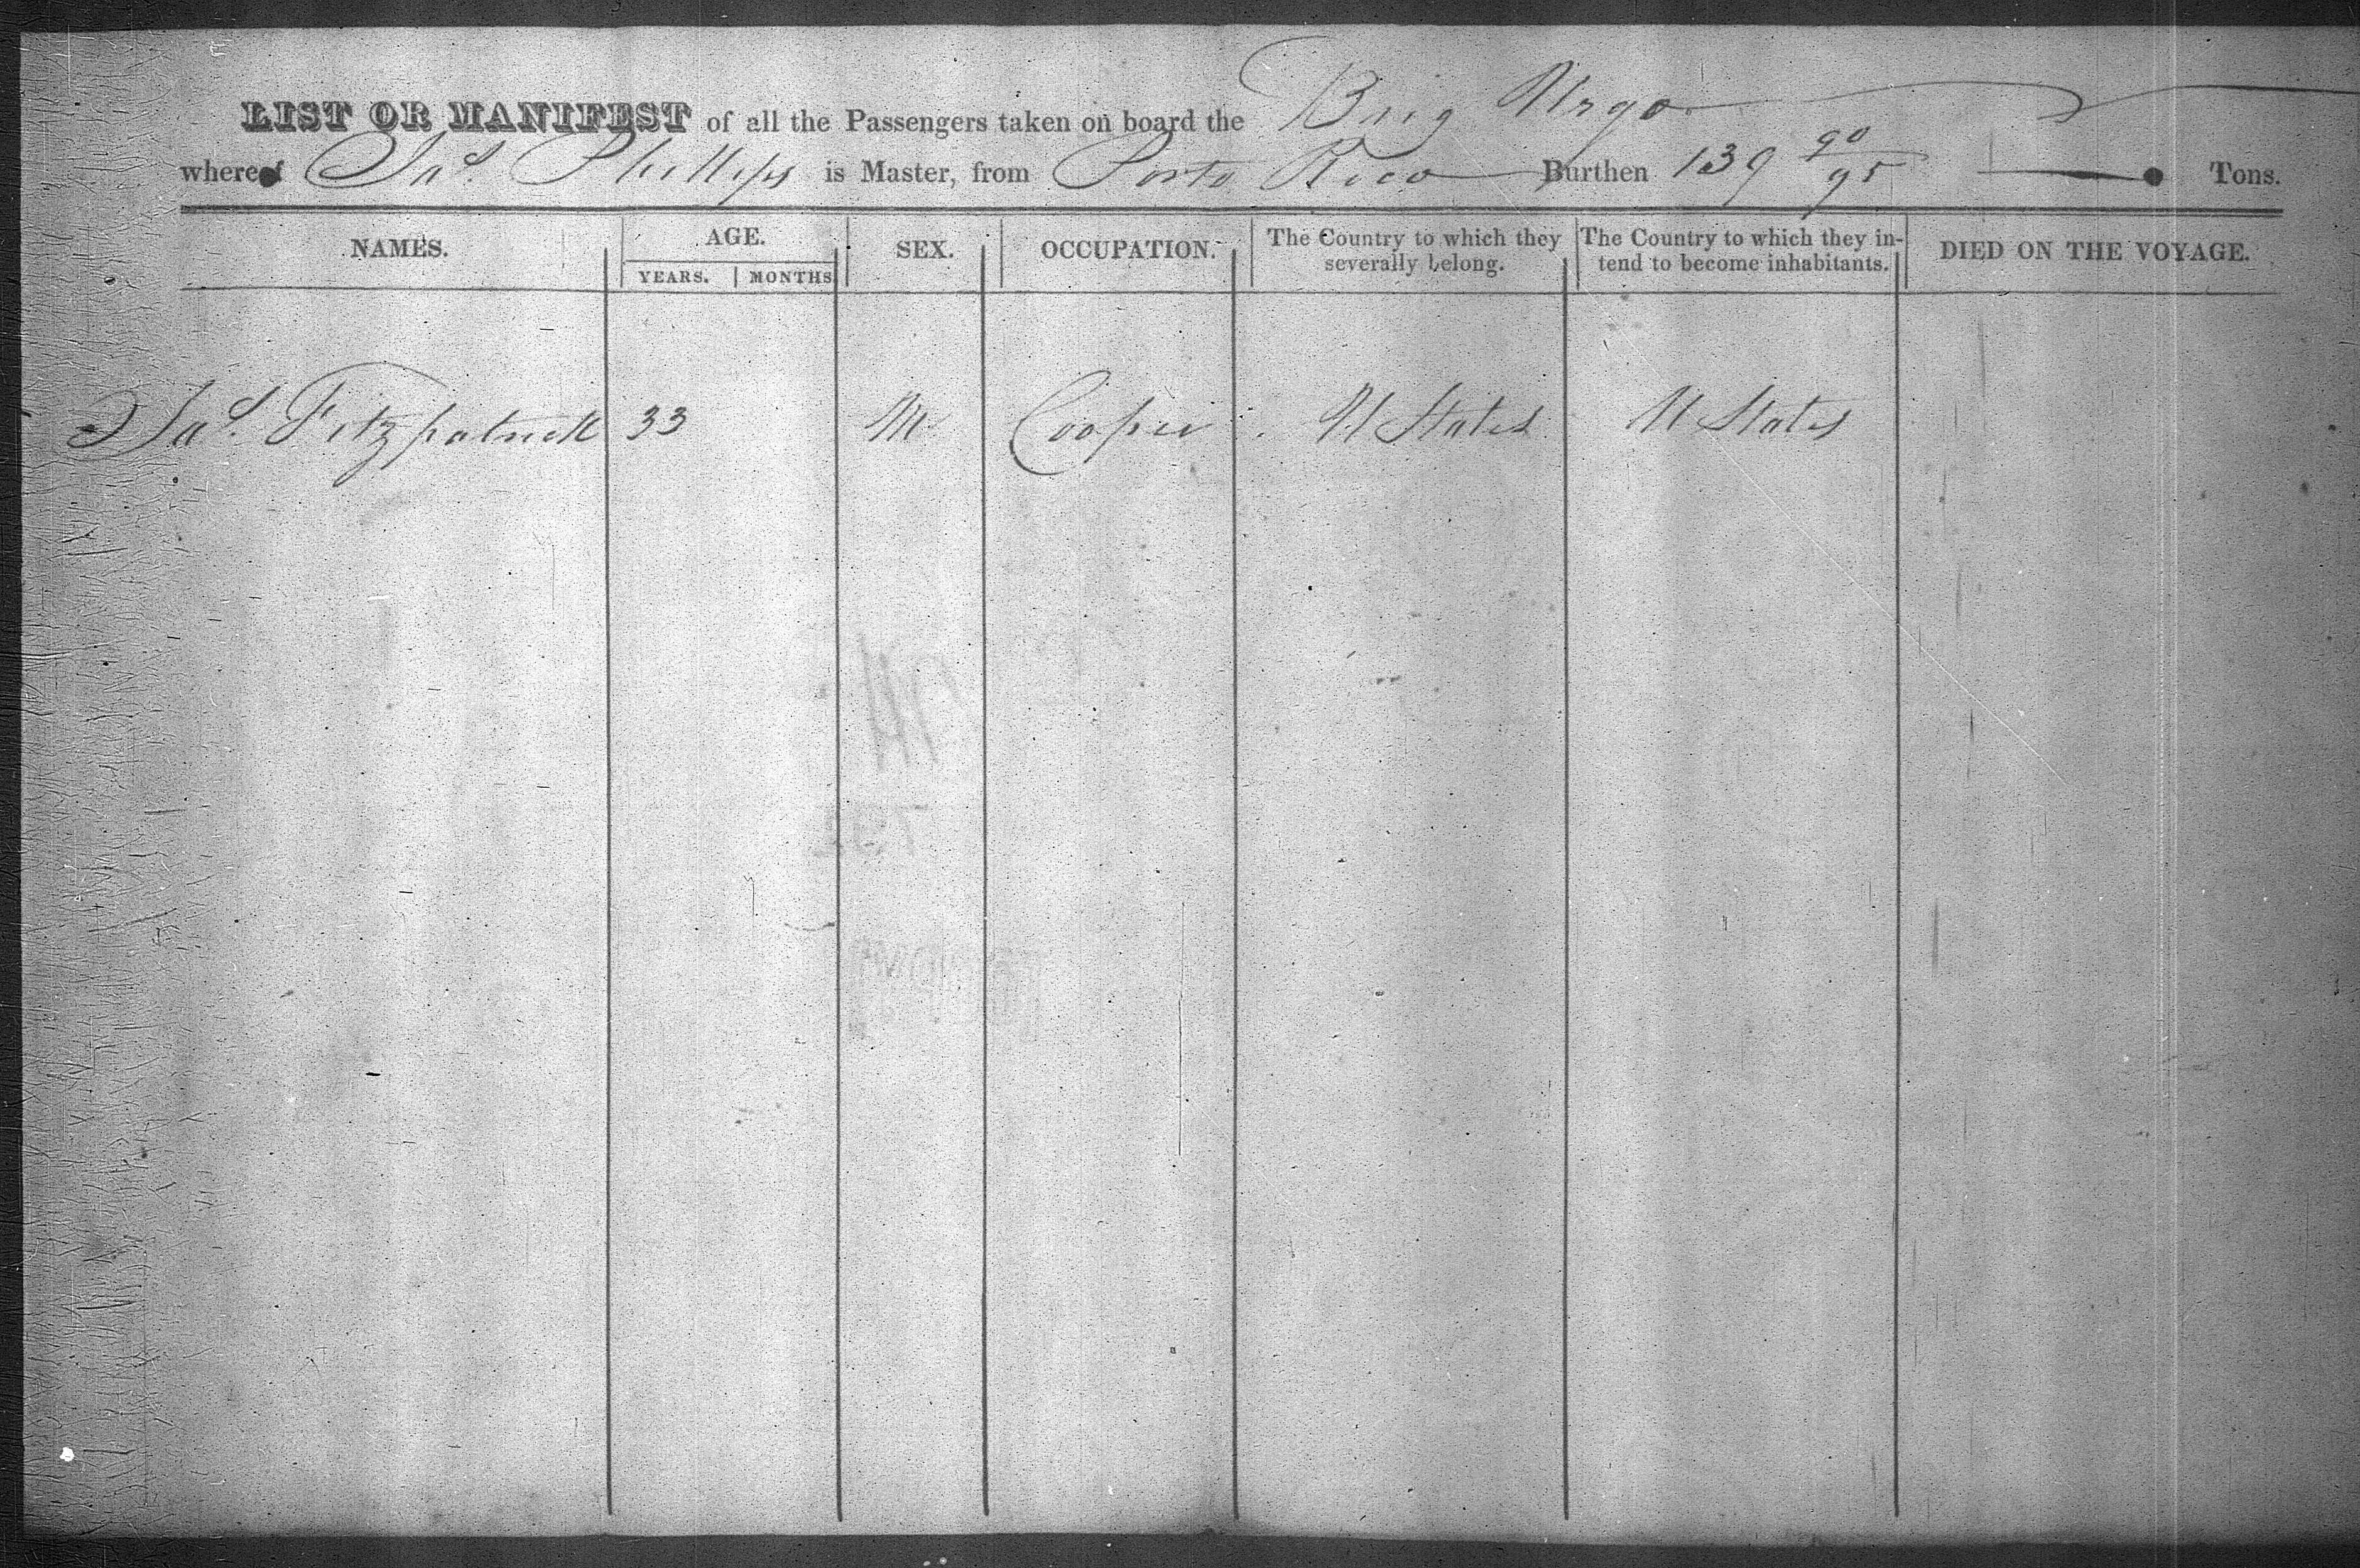 LIST OR MANIFEST of all the Passengers taken on board the Brig Argo
whereof Jas. Phillips is Master, from Porto Rico Burthen 139 90/95 Tons.
NAMES. AGE. SEX. OCCUPATION. The Country to which they severally belong. The Country to which they in-tend to become inhabitants. DIED ON THE VOYAGE.
YEARS. MONTHS
Jas. Fitzpatrick 33 M Cooper U States U States